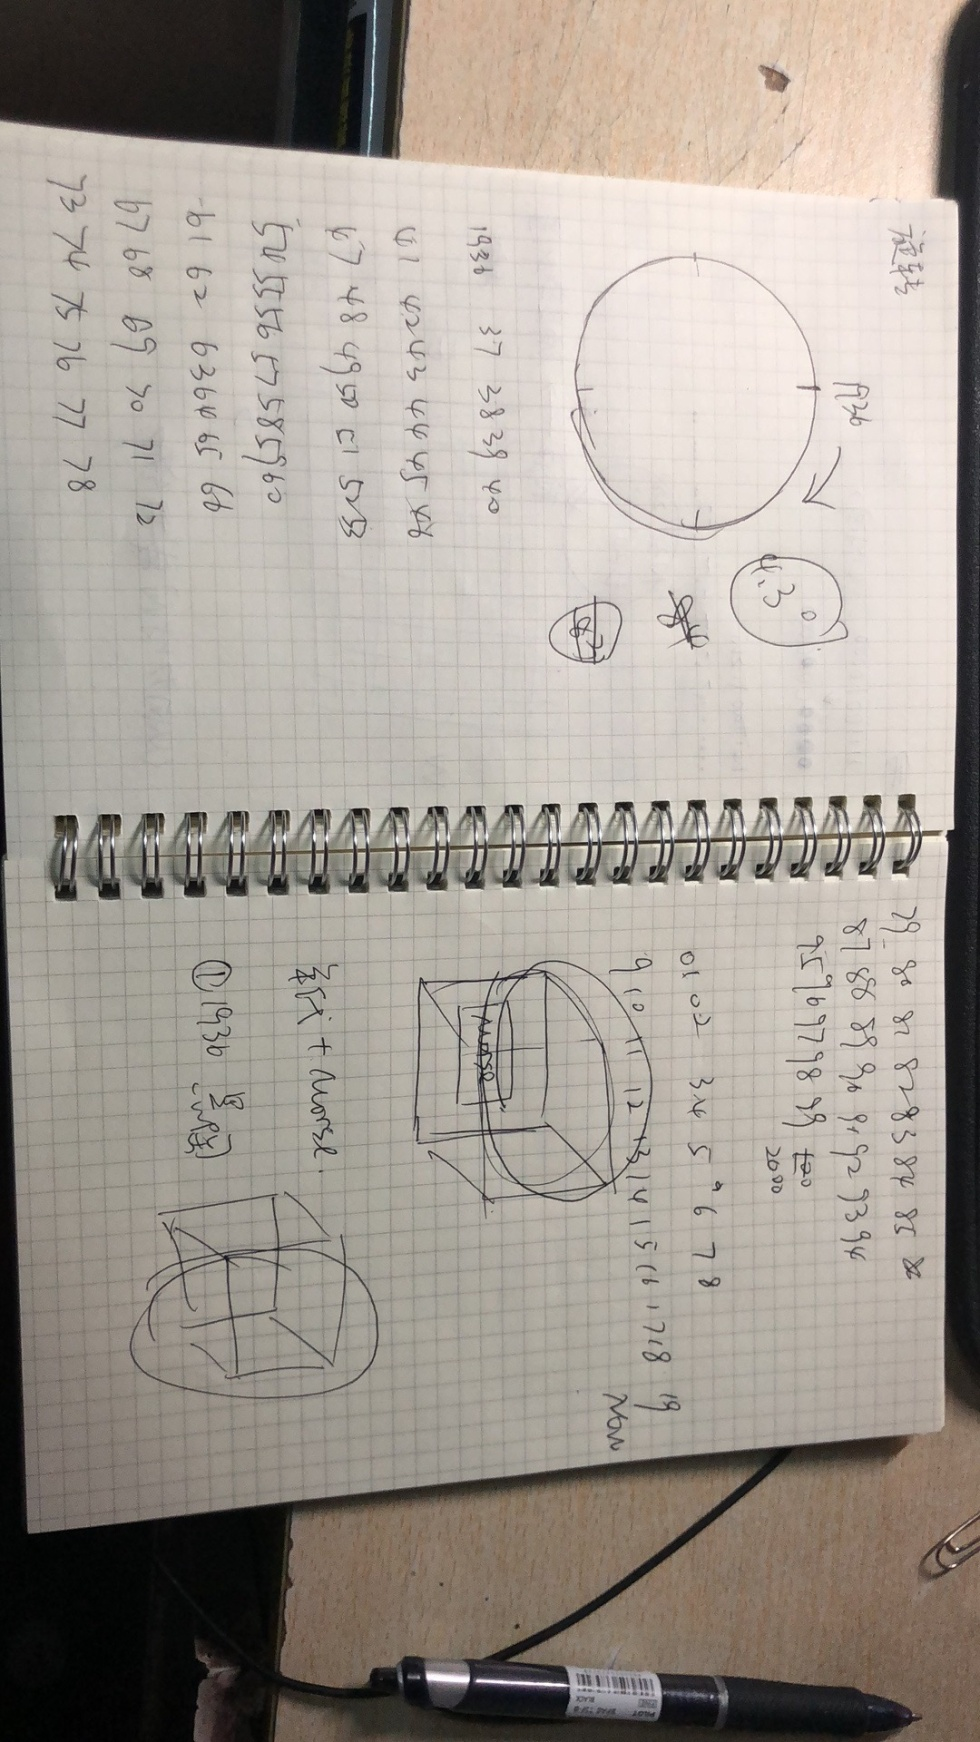 1936
1936 37 38 39 40
41 42 43 44 45 46
47 48 49 50 51 52 53
54 55 56 57 58 59 60
61 62 63 64 65 66
67 68 69 70 71 72
73 74 75 76 77 78
79 80 81 82 83 84 85 86
87 88 89 90 91 92 93 94
95 96 97 98 99
2000
01 02 3 4 5 6 7 8
9 10 11 12 13 14 15 16 17 18 19
Now
morse
+ morse.
① 1936
PILOT
BLACK